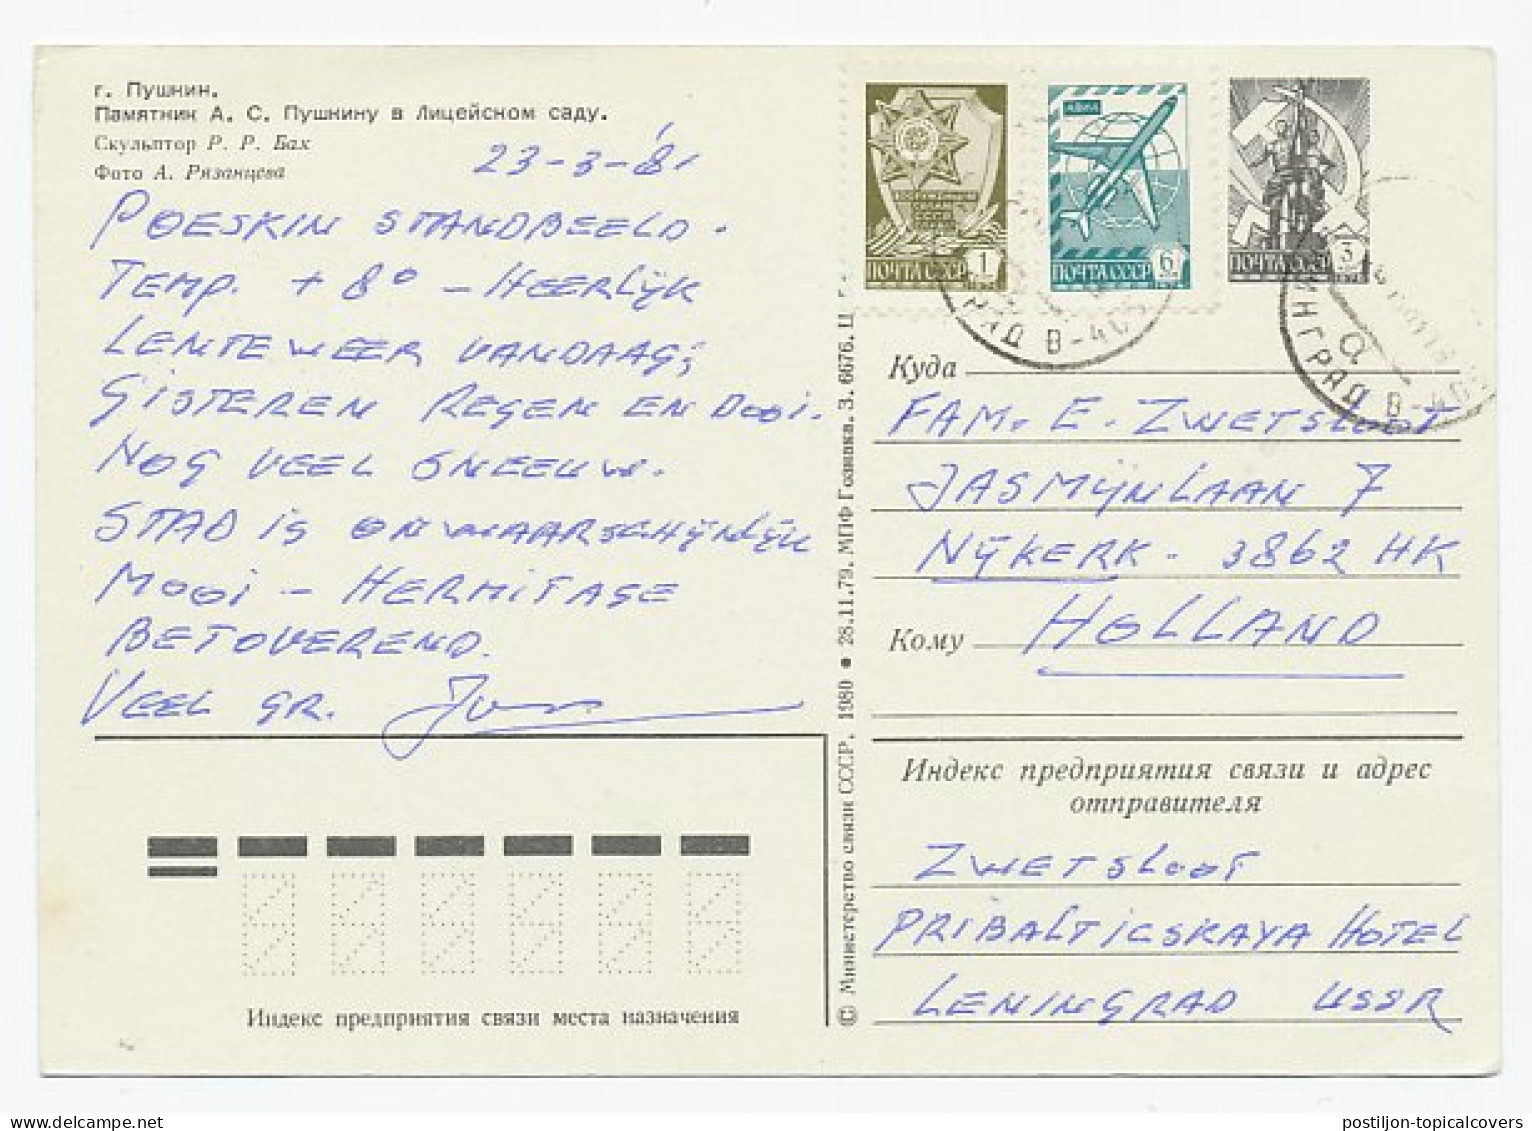 г. Пушкин.
Памятник А. С. Пушкину в Лицейском саду.
Скульптор Р. Р. Бах
Фото А. Рязанцева
23-3-'81
POESKIN STANDBEELD.
TEMP. + 8° - HEERLIJK
LENTEWEER VANDAAG;
GISTEREN REGEN EN DOOI.
NOG VEEL SNEEUW.
STAD IS ONWAARSCHIJNLIJK
MOOI - HERMITAGE
BETOVEREND.
VEEL GR.
Индекс предприятия связи места назначения
© Министерство связи СССР. 1980 • 28.11.79. МПФ Гознака. З. 6676. Ц.
ПОЧТА СССР 1
АВИА
ПОЧТА СССР 6
ПОЧТА СССР 3
РАД В-40
НИНГРАД В-40
а
Куда
FAM. E. ZWETSLOOT
JASMIJNLAAN 7
NIJKERK - 3862 HK
Кому
HOLLAND
Индекс предприятия связи и адрес
отправителя
ZWETSLOOT
PRIBALTICSKAYA HOTEL
LENINGRAD USSR
postiljon-topicalcovers